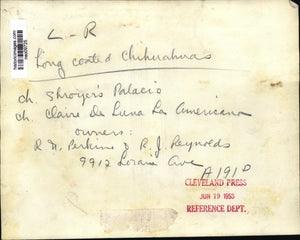 L - R
Long coated Chihuahuas
ch. Shroyer's Palacio
ch. Claire De Luna La Americana
owners:
R. N. Perkins & R. J. Reynolds
9912 Lorain Ave
A191D
CLEVELAND PRESS
JUN 19 1955
REFERENCE DEPT.